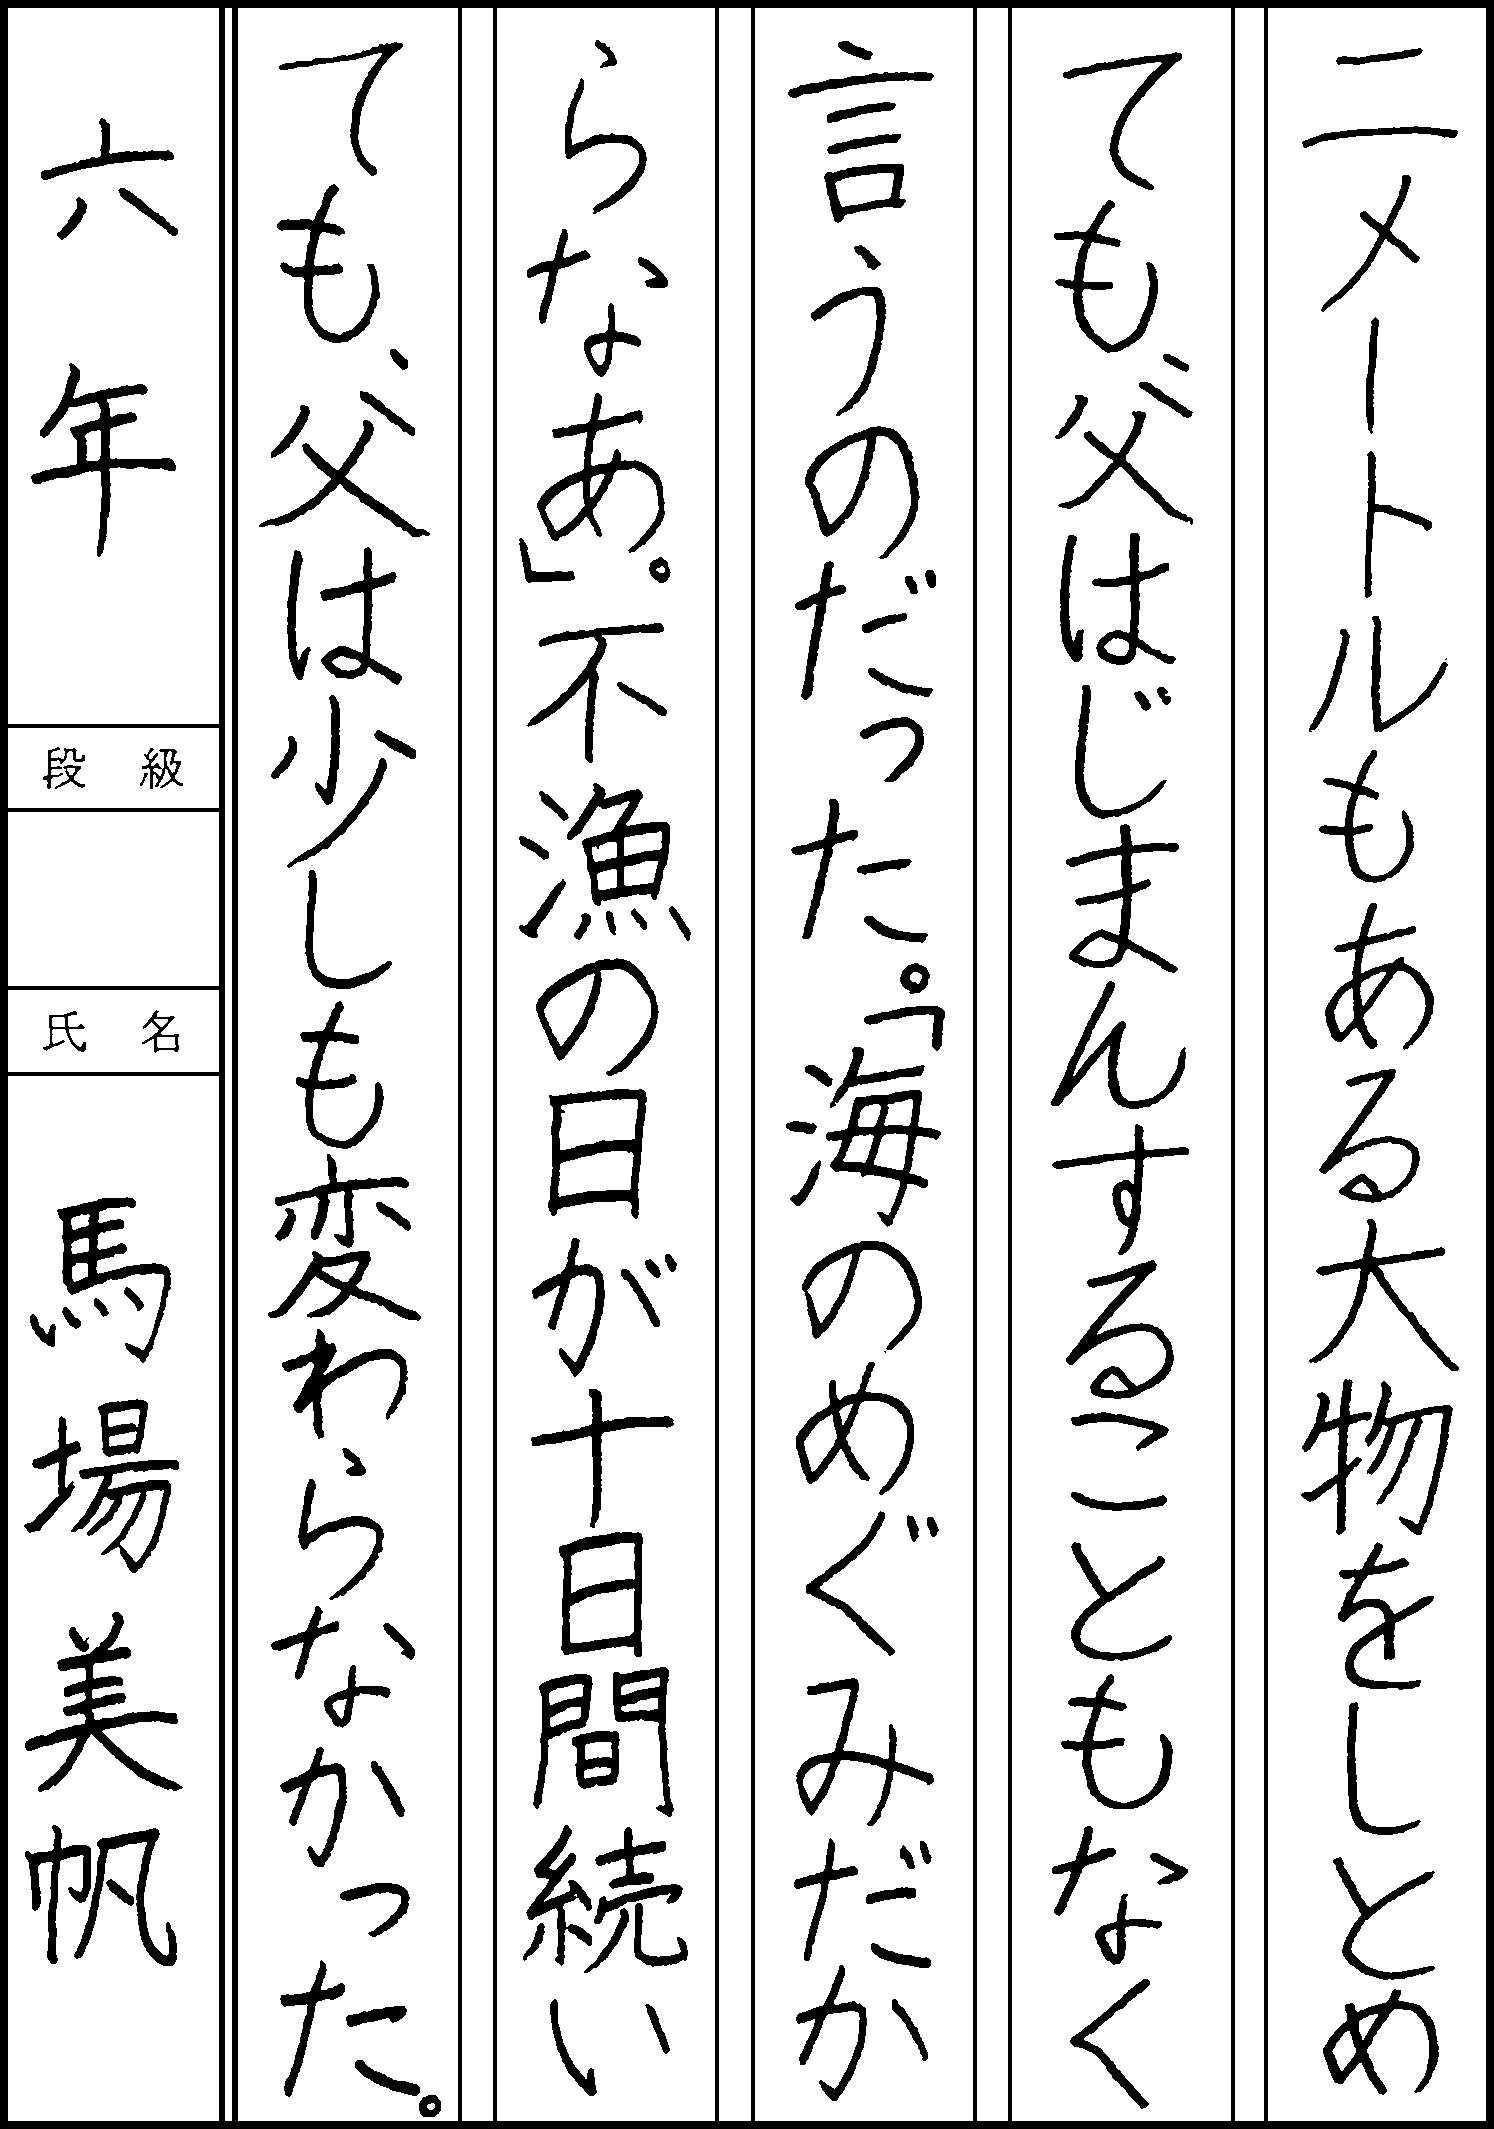 二メートルもある大物をしとめ
ても、父はじまんすることもなく
言うのだった。「海のめぐみだか
らなあ。」不漁の日が十日間続い
ても、父は少しも変わらなかった。
六年
段級
氏名
馬場美帆